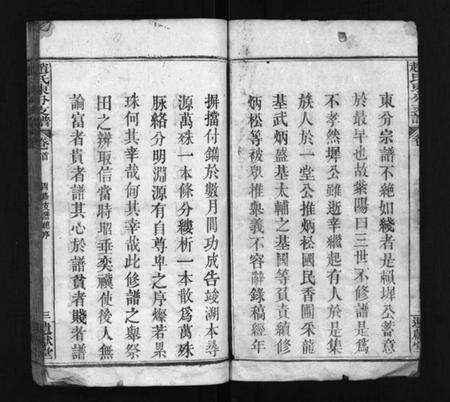 東分宗譜不絶如綫者是賴墀公蓄意
於最早也故紫陽曰三世不修譜是爲
不孝然墀公雖逝幸繼起有人於是集
族人於一堂公推炳松國民香圃采龍
基武炳益基太輔之基閩等負責續修
炳松等被眾推舉義不容辭錄稿經年
摒擋付鐫於數月間功成告竣溯本尋
源萬殊一本條分縷析一本散爲萬殊
脉絡分明淵源有自尊卑之序燦若眾
珠何其幸哉何其幸哉此修譜之舉祭
田之辨取信當時昭垂奕禩使後人無
論富者貴者譜其心於譜貧者賤者譜
趙氏東分支譜
卷首
三